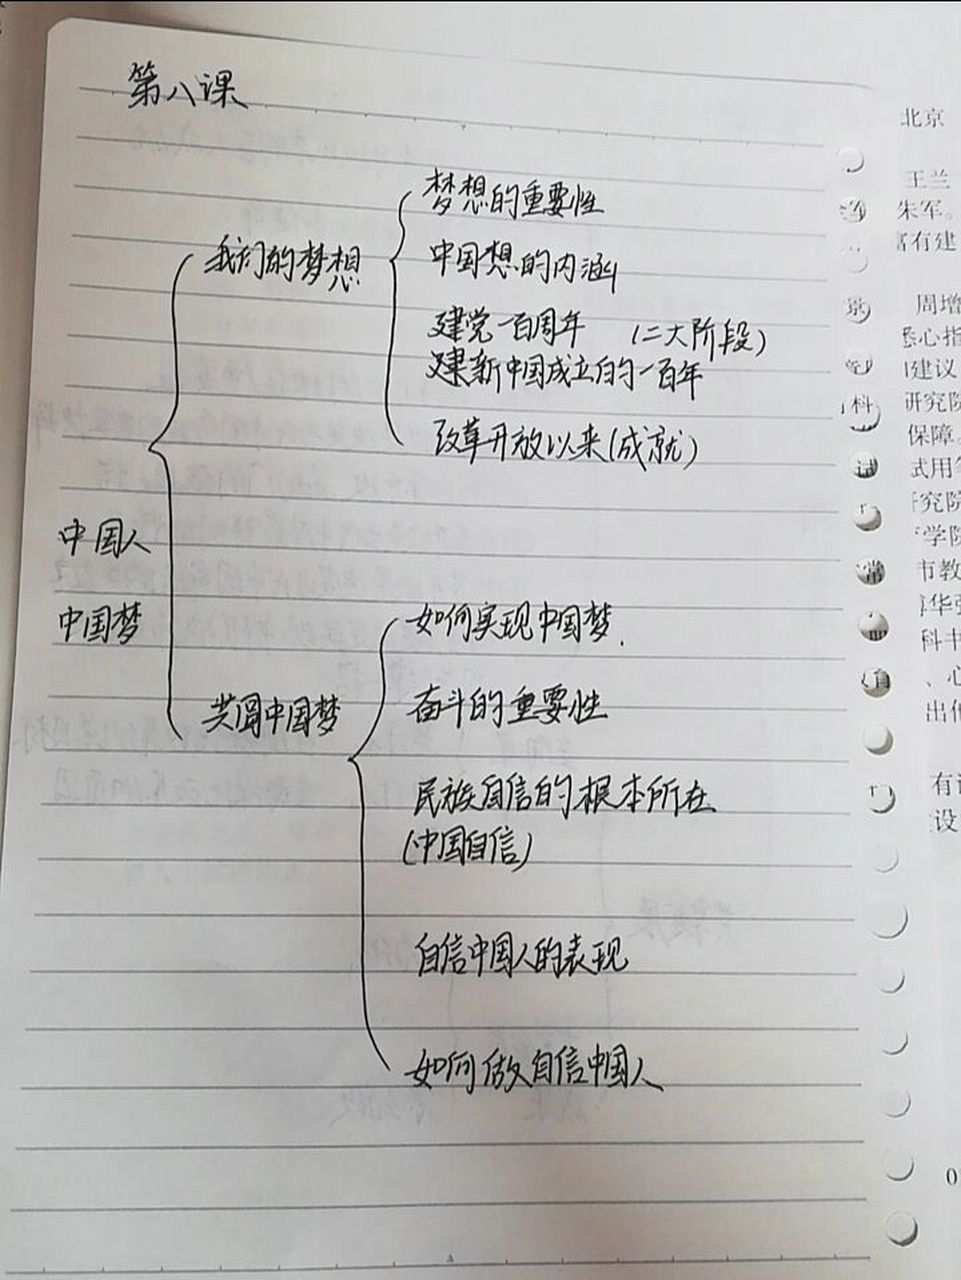 第八课
中国人
中国梦
我们的梦想
梦想的重要性
中国想的内涵
建党一百周年 (二大阶段)
建新中国成立的一百年
改革开放以来(成就)
共圆中国梦
如何实现中国梦.
奋斗的重要性
民族自信的根本所在
(中国自信)
自信中国人的表现
如何做自信中国人
北京
王兰
朱军。
富有建
周增
悉心指
建议
研究院
保障。
试用
研究院
学院
市教
科书
、心
出他
有
设
0